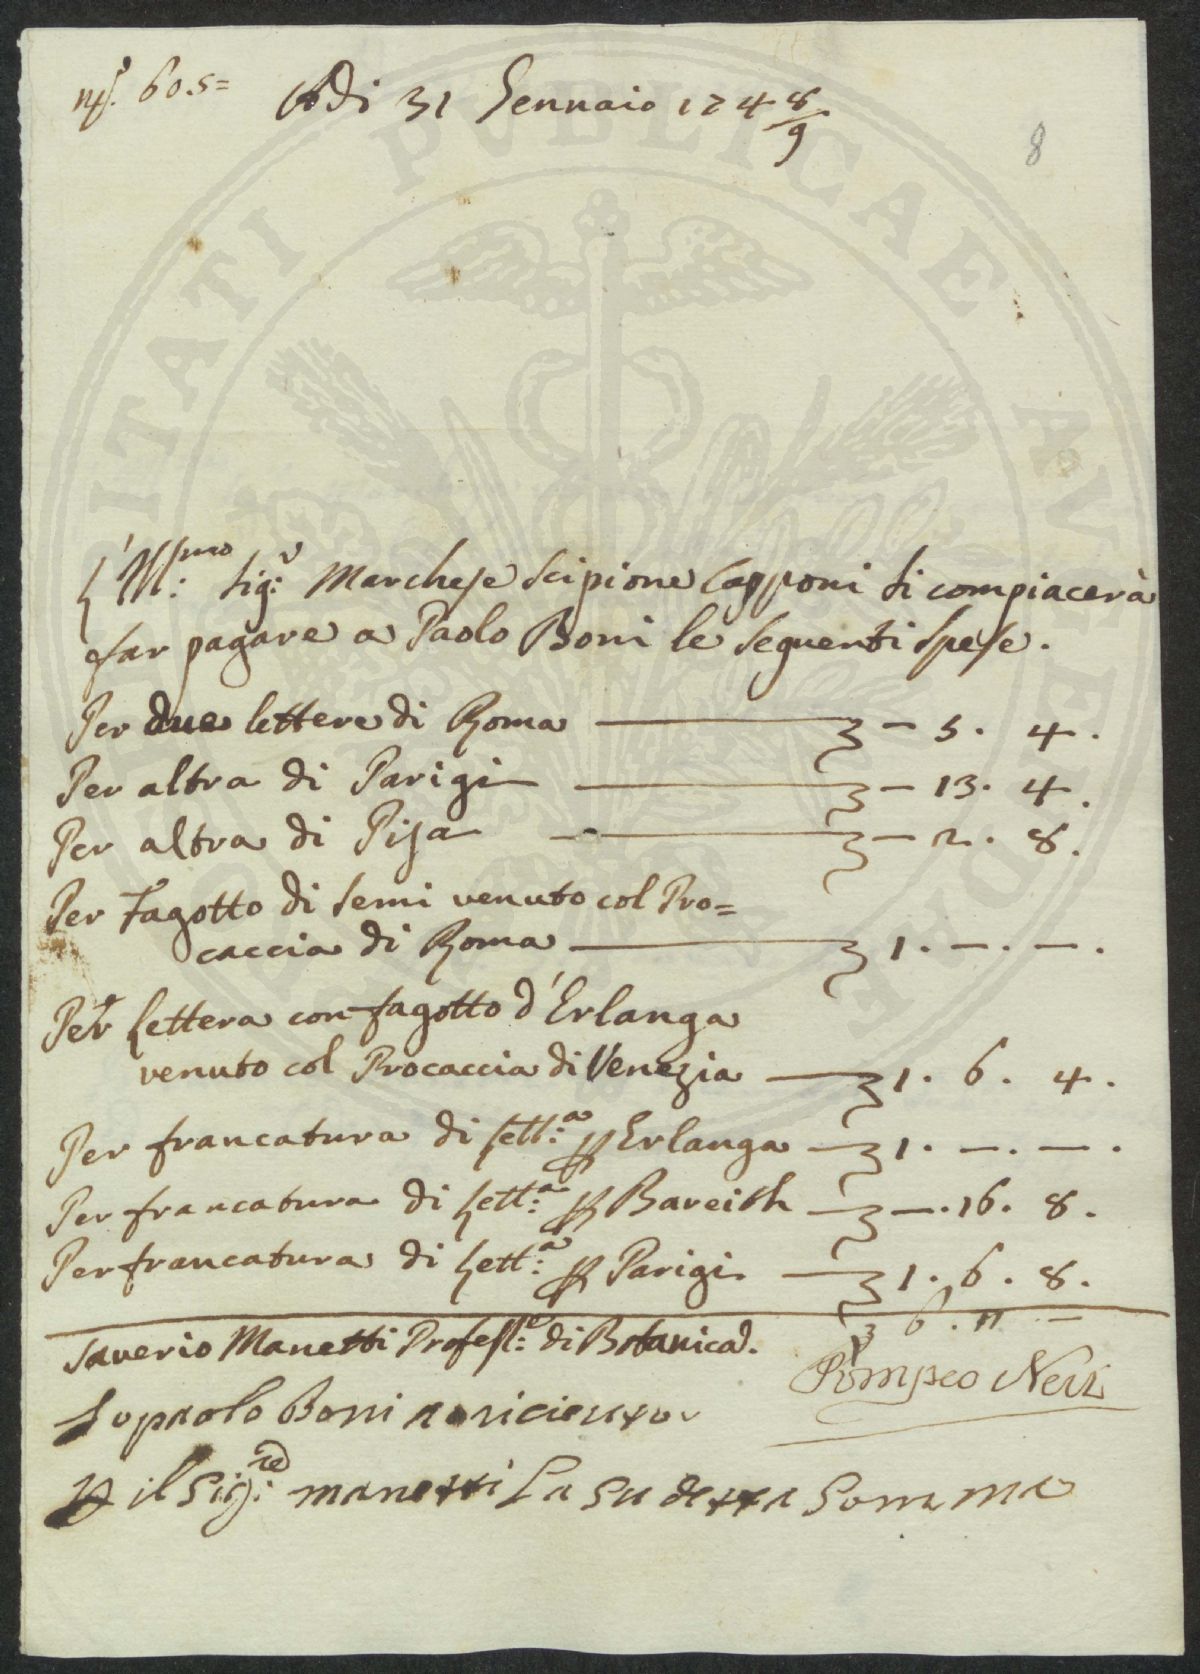 nº. 60.5=
Adi 31 Gennaio 174 8/9
8
L'Ill:smo Sig:r Marchese Scipione Capponi si compiacerà
far pagare a Paolo Boni le seguenti spese.
Per due lettere di Roma — - 5. 4.
Per altra di Parigi — - 13. 4.
Per altra di Pisa — - 2. 8.
Per Fagotto di semi venuto col Pro=
caccia di Roma — 1. —. —.
Per lettera con fagotto d'Erlanga
venuto col Procaccia di Venezia — 1. 6. 4.
Per francatura di lett:a p Erlanga — 1. —. —.
Per francatura di lett:a p Bareith — —. 16. 8.
Per francatura di lett:a p Parigi. — 1. 6. 8.
6. 11 —
Saverio Manetti Profess:e di Botanica.
Pompeo Neri
Io paolo Boni o riceuto
p il Sig:re manetti La sudetta Somma
PVBLICAE